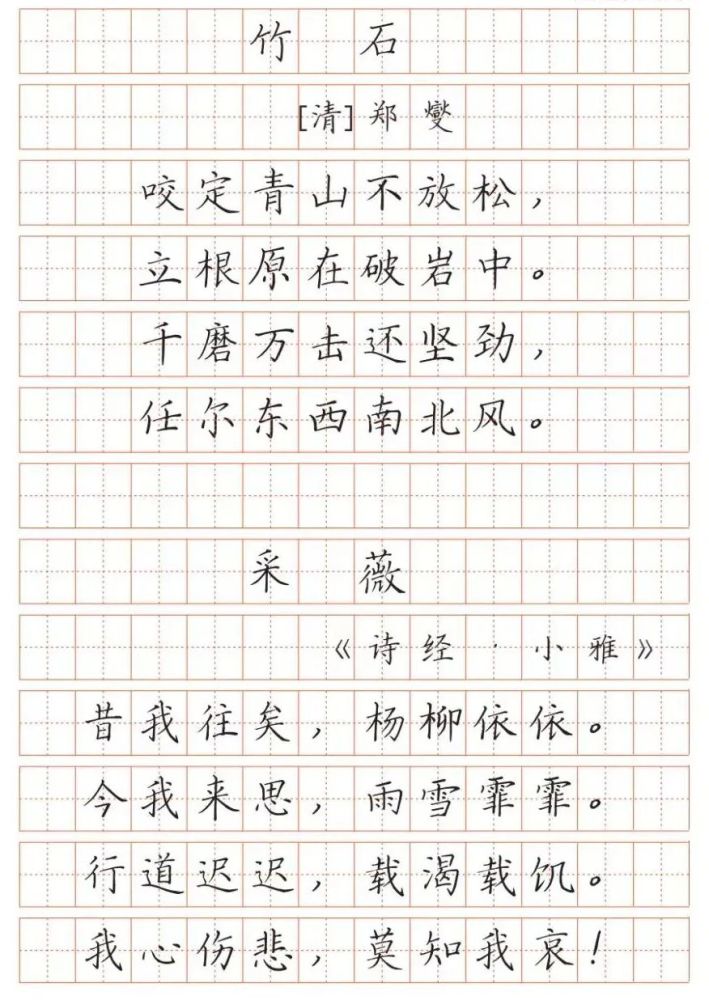 竹 石
[清]郑燮
咬定青山不放松，
立根原在破岩中。
千磨万击还坚劲，
任尔东西南北风。
采 薇
《诗经·小雅》
昔我往矣，杨柳依依。
今我来思，雨雪霏霏。
行道迟迟，载渴载饥。
我心伤悲，莫知我哀！